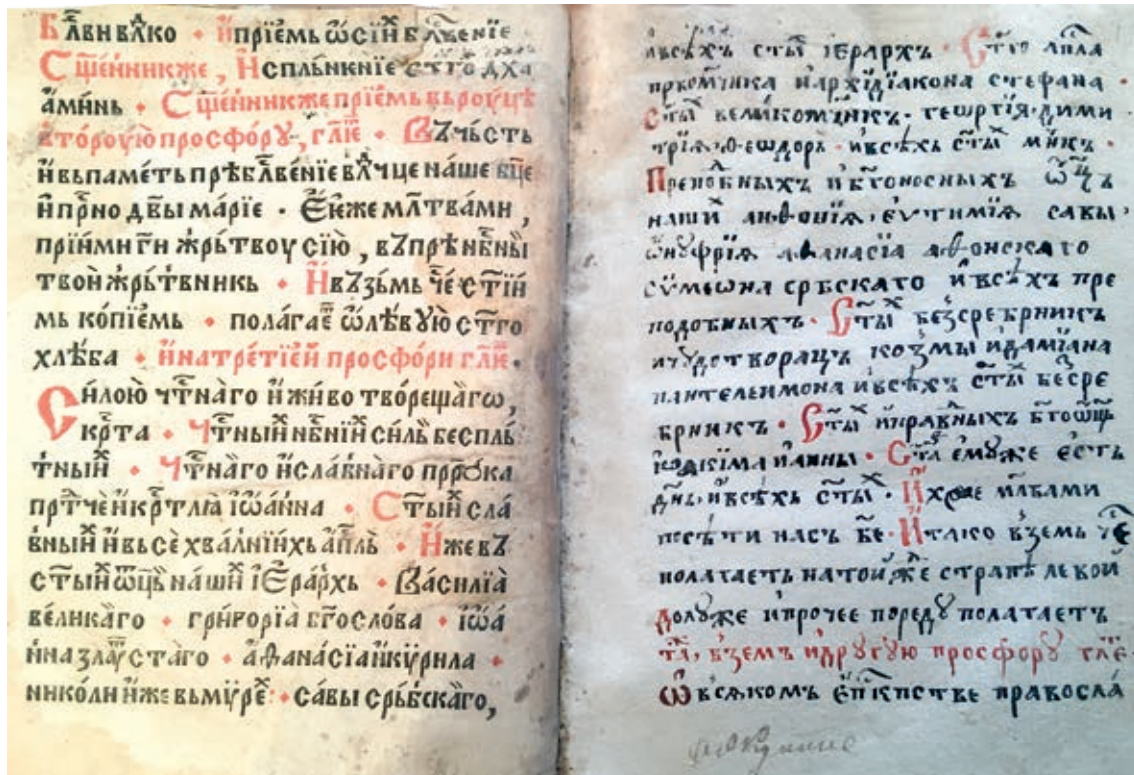 Бл҃внвл҃ко · Ѝпрїе́мь ѿсїѝ бл҃ве́нїе
Сщ҃е́нникже, Ѝсплъне́нїе ст҃го дх҃а
а́ми́нь · Сщ҃е́нникже прїе́мь вь роу́цѣ
вто́роую просфо́ру, гл҃ѥ · Въ ча́сть
ѝ вь па́меть прѣбл҃ве́нїе вл҃чце на́ше бц҃е
ѝ пр҃но дв҃ы мар́їе · Е҆́иже мл҃тва́ми,
прїими гн҃ жрь́твоу сїю̀, въ прѣнб҃ны
твоѝ жрь́твникь · Ѝ въ зь́мь че҃стїѝ
мь ко́пїе́мь · пола́гае҃ ѿ лѣ́вую ст҃го
хлѣ́ба · ѝ на тре́тїеи просфо́ри гл҃ѥ ·
Си́лою чт҃на́го ѝ живо тво́рещаго,
кр҃та · Чт҃ныѝ нб҃нїѝ си́ль беспль́
т́ныѝ · Чт҃на́го ѝ сла́внаго пр҃рока
пр҃тче ѝ кр҃тлꙗ їѡа́нна · Ст҃ыѝ сла́
вныѝ ѝ вьсѐхва́лнїѝхь а҆п҃лъ · Ѝже въ
ст҃ыѝ ѿц҃ь на́шѝ їЕра́рхь · Васи́лїа
вели́каго · григорїа бг҃осло́ва · їѡа́
нна злау҃стаго · аѳана́сїа ѝ кѵ́рила ·
николи ѝже вь мѵ́ре҃ · са́вы срь́бскаго,
ивсѣхъ ст҃ы їерархъ · Ст҃го ап҃ла
прьком҃чника иархїдїакона стефана ·
ст҃ы велѝком҃чникъ · геѡргїꙗ · дими
трїꙗ · ѳеѡдорь · ивсѣхь ст҃ы м҃нкъ ·
Препо҃бныхъ и б҃гоносныхъ ѿц҃ъ
наши антонїꙗ · еѵтимїꙗ савы ·
ѡнуфрїꙗ аѳанасїа аѳонскаго
сѵмеѡна србскаго ивсѣхъ пре
подобныхъ · Ст҃ы безсребрникъ
ичудотворацъ козмы идамїана
пантелеимона ивсѣхъ ст҃ы бесре
брникъ · Ст҃ы иправ҃ныхъ б҃гоѡц҃ъ
їѡакїма ианны · Ст҃л емуже есть
дн҃ь · ивсѣхь ст҃ы · Ихже мл҃бами
посѣти насъ бж҃е · Итако вземь че҃
полагаетъ на той же странѣ лѣвой
долуже ипрочее пореду полагаетъ
та҃, вземъ идругую просфору гл҃е ·
Ѿ всꙗкомъ еп҃кпстве правосла